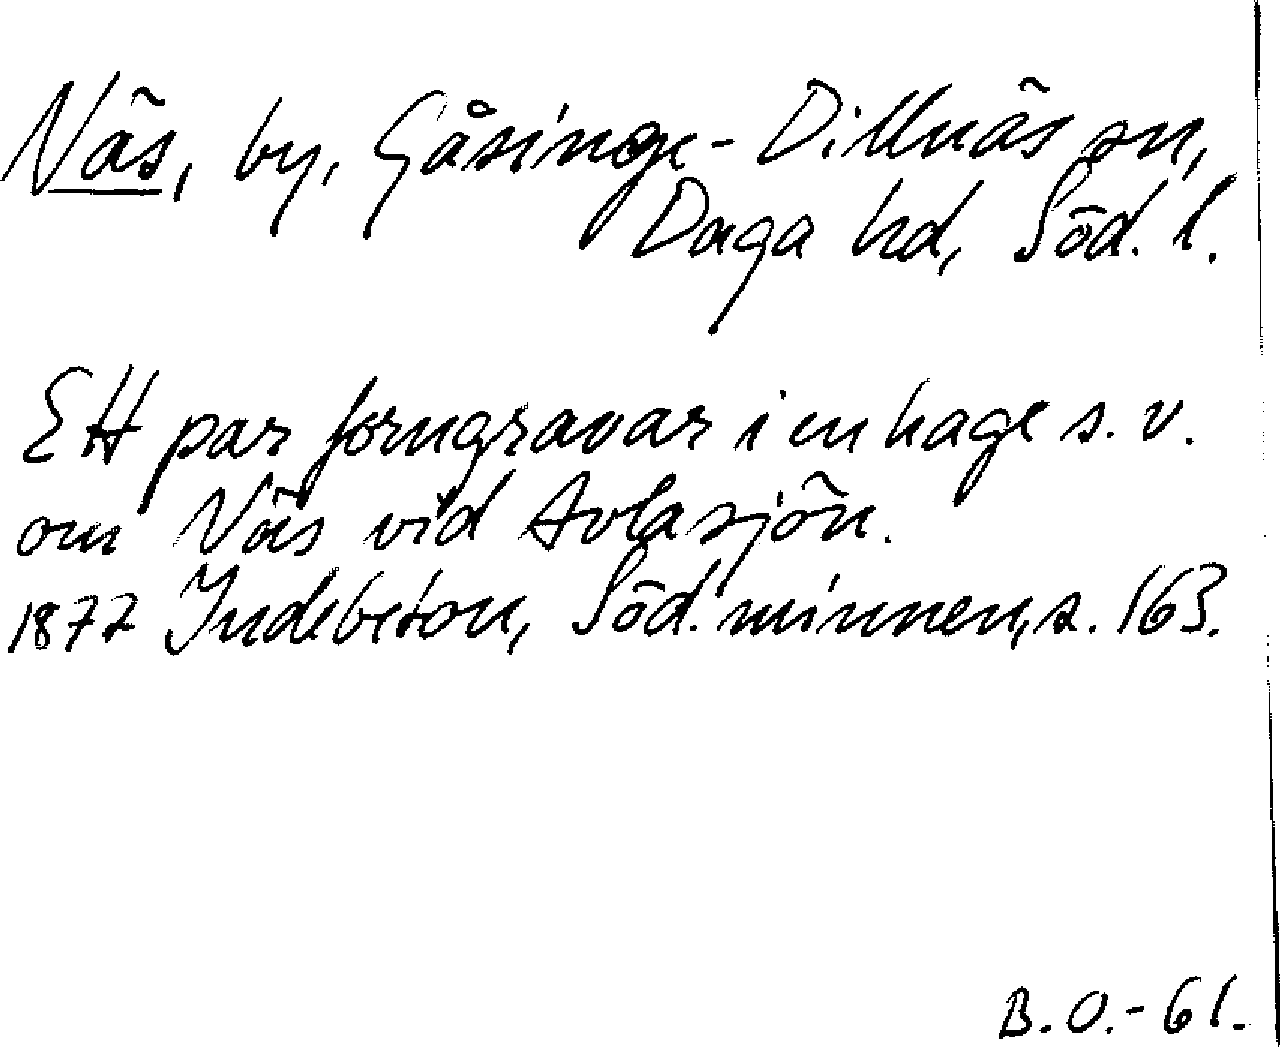 Näs, by, Gåsinge-Dillnäs sn,
Daga hd, Söd. l.
Ett par forngravar i en hage s.v.
om Näs vid Avlasjön.
1877 Indebetou, Söd. minnen, s. 163.
B.O.-61.